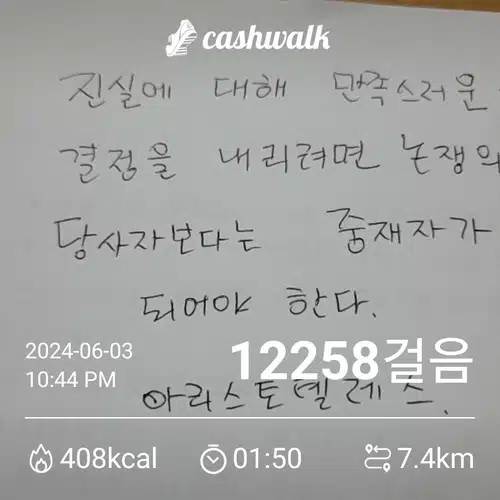 cashwalk
진실에 대해 만족스러운
결정을 내리려면 논쟁의
당사자보다는 중재자가
되어야 한다.
2024-06-03
10:44 PM
12258걸음
아리스토텔레스.
408kcal 01:50 7.4km